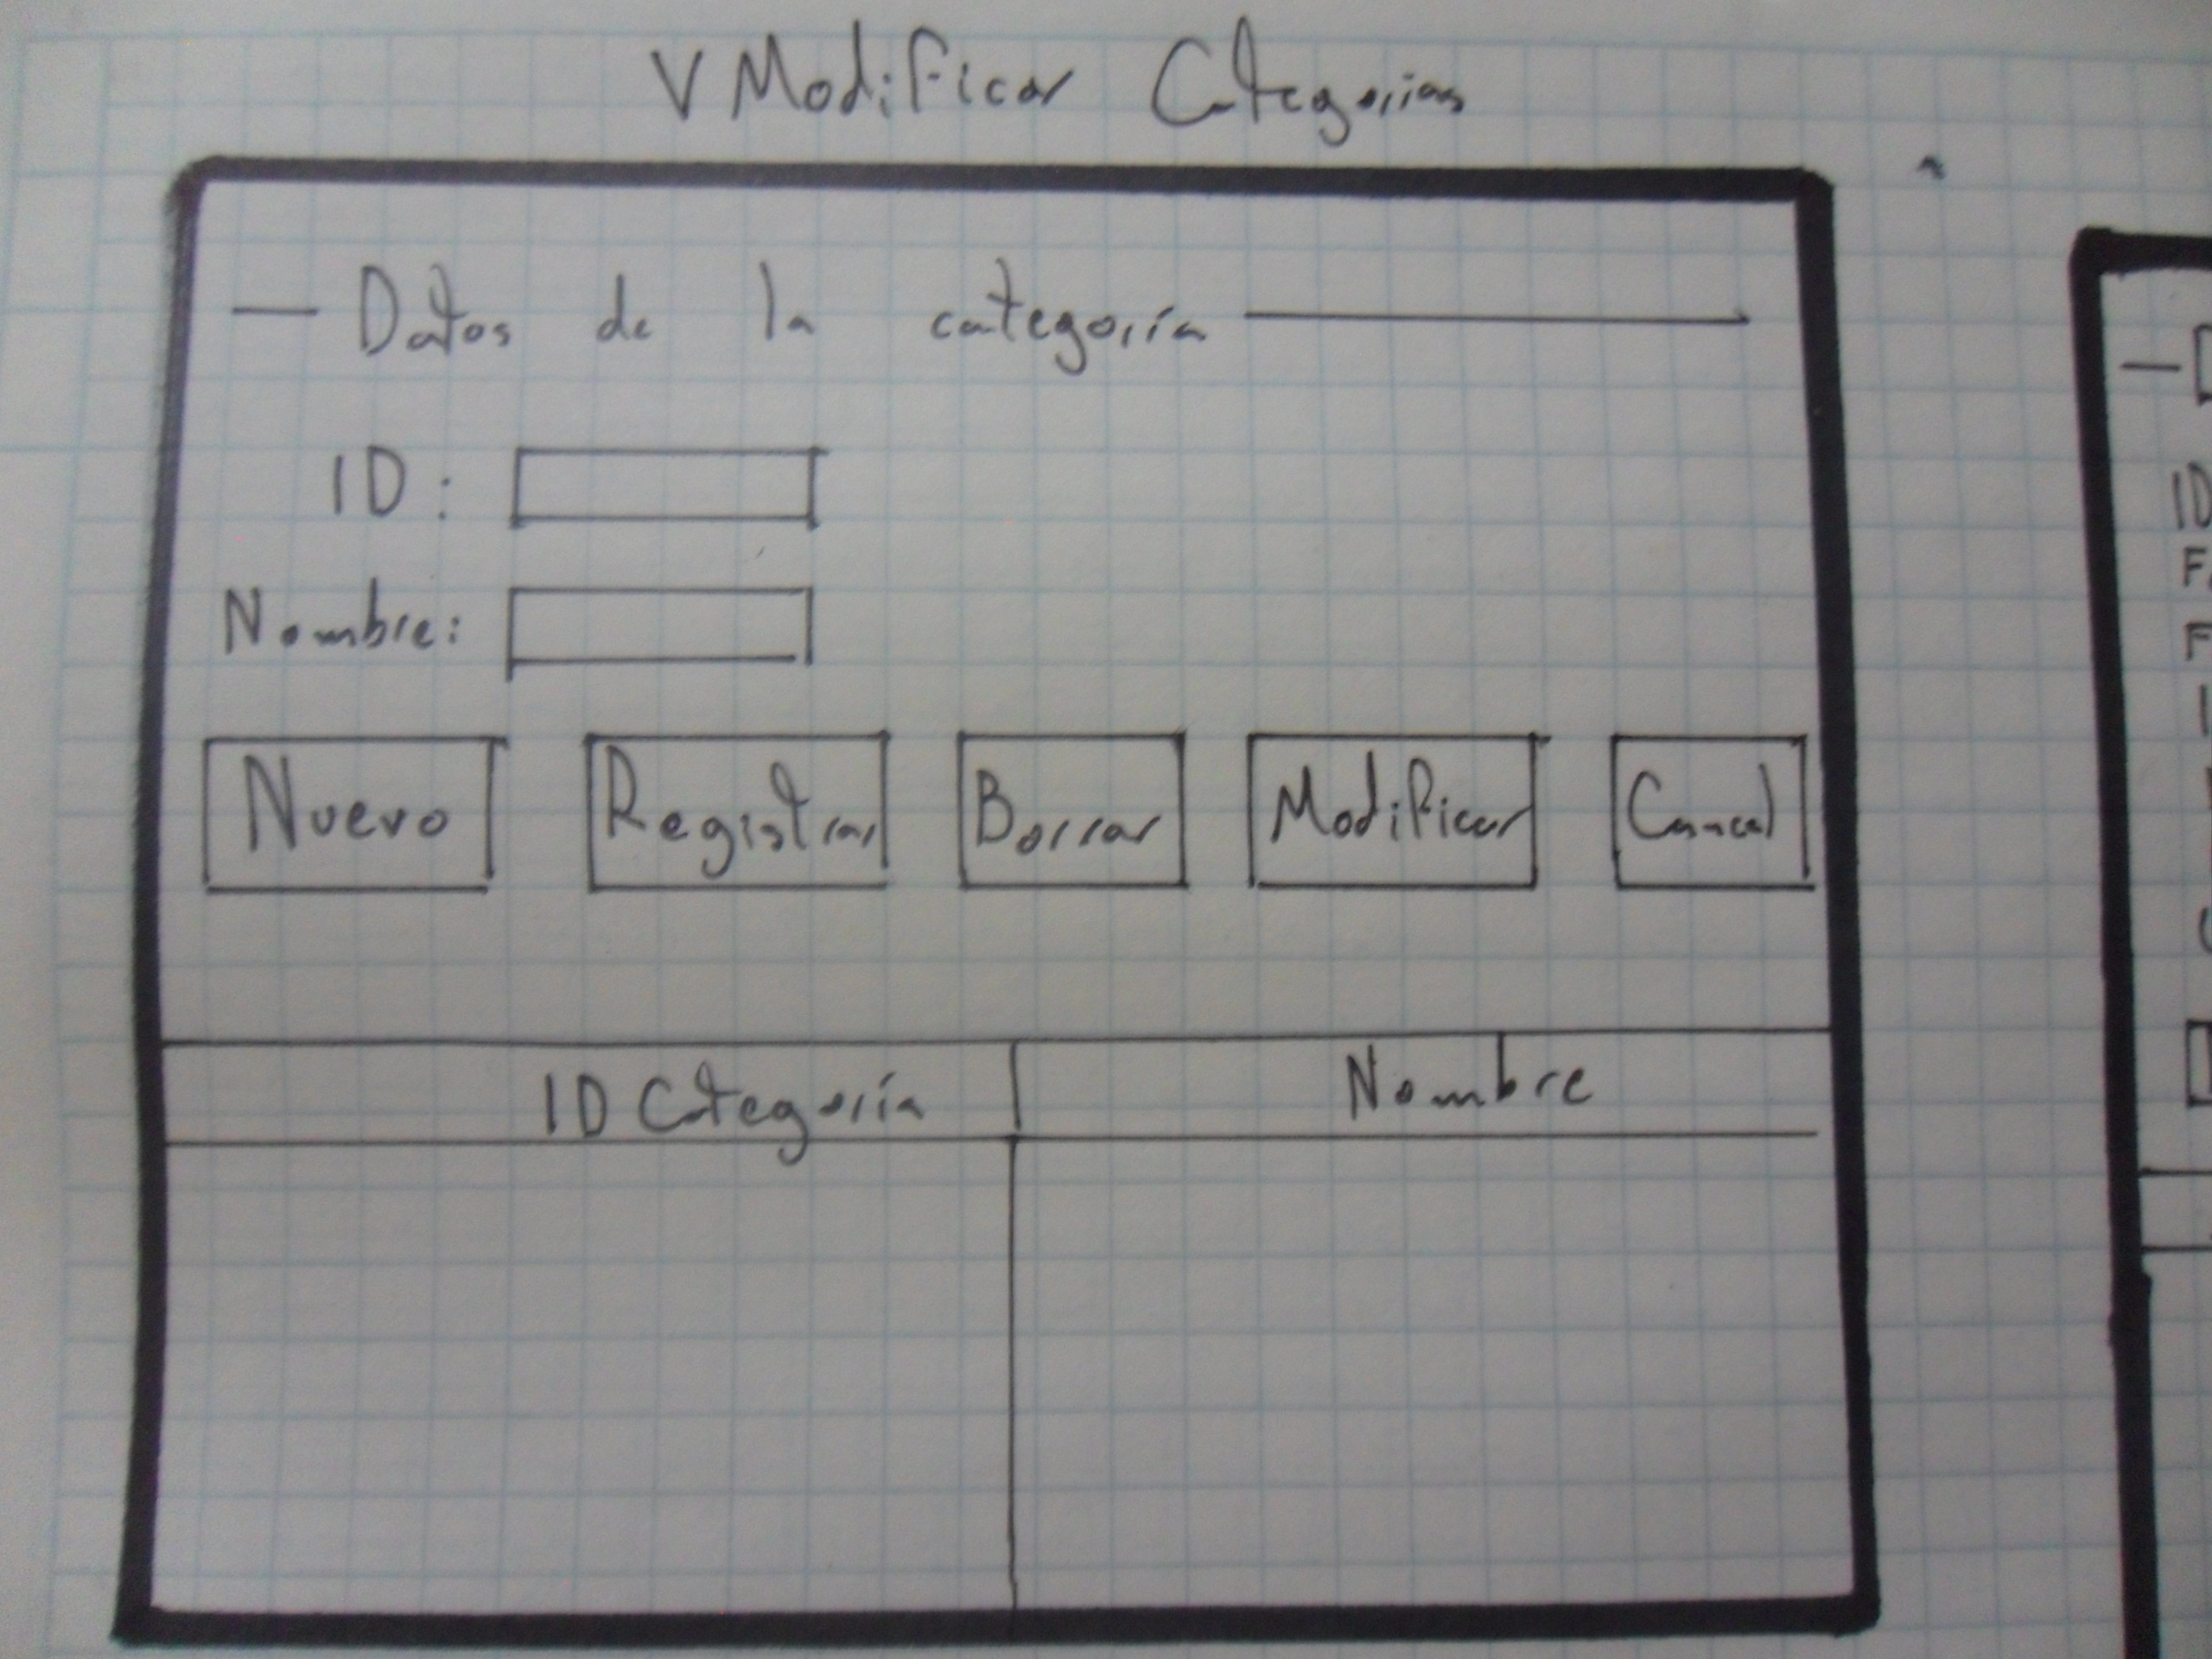 V Modificar Categorias
Datos de la categoría
ID:
Nombre:
Nuevo Registrar Borrar Modificar Cancel
ID Categoría Nombre
ID